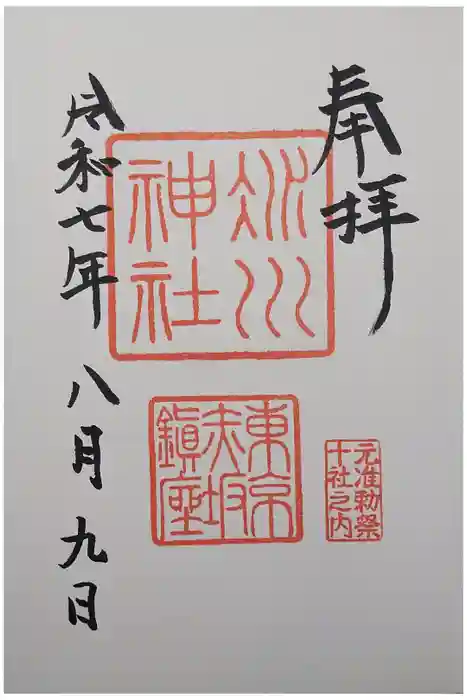 奉拝
氷川
神社
東京
赤坂
鎮座
元准勅祭
十社之内
令和七年 八月 九日